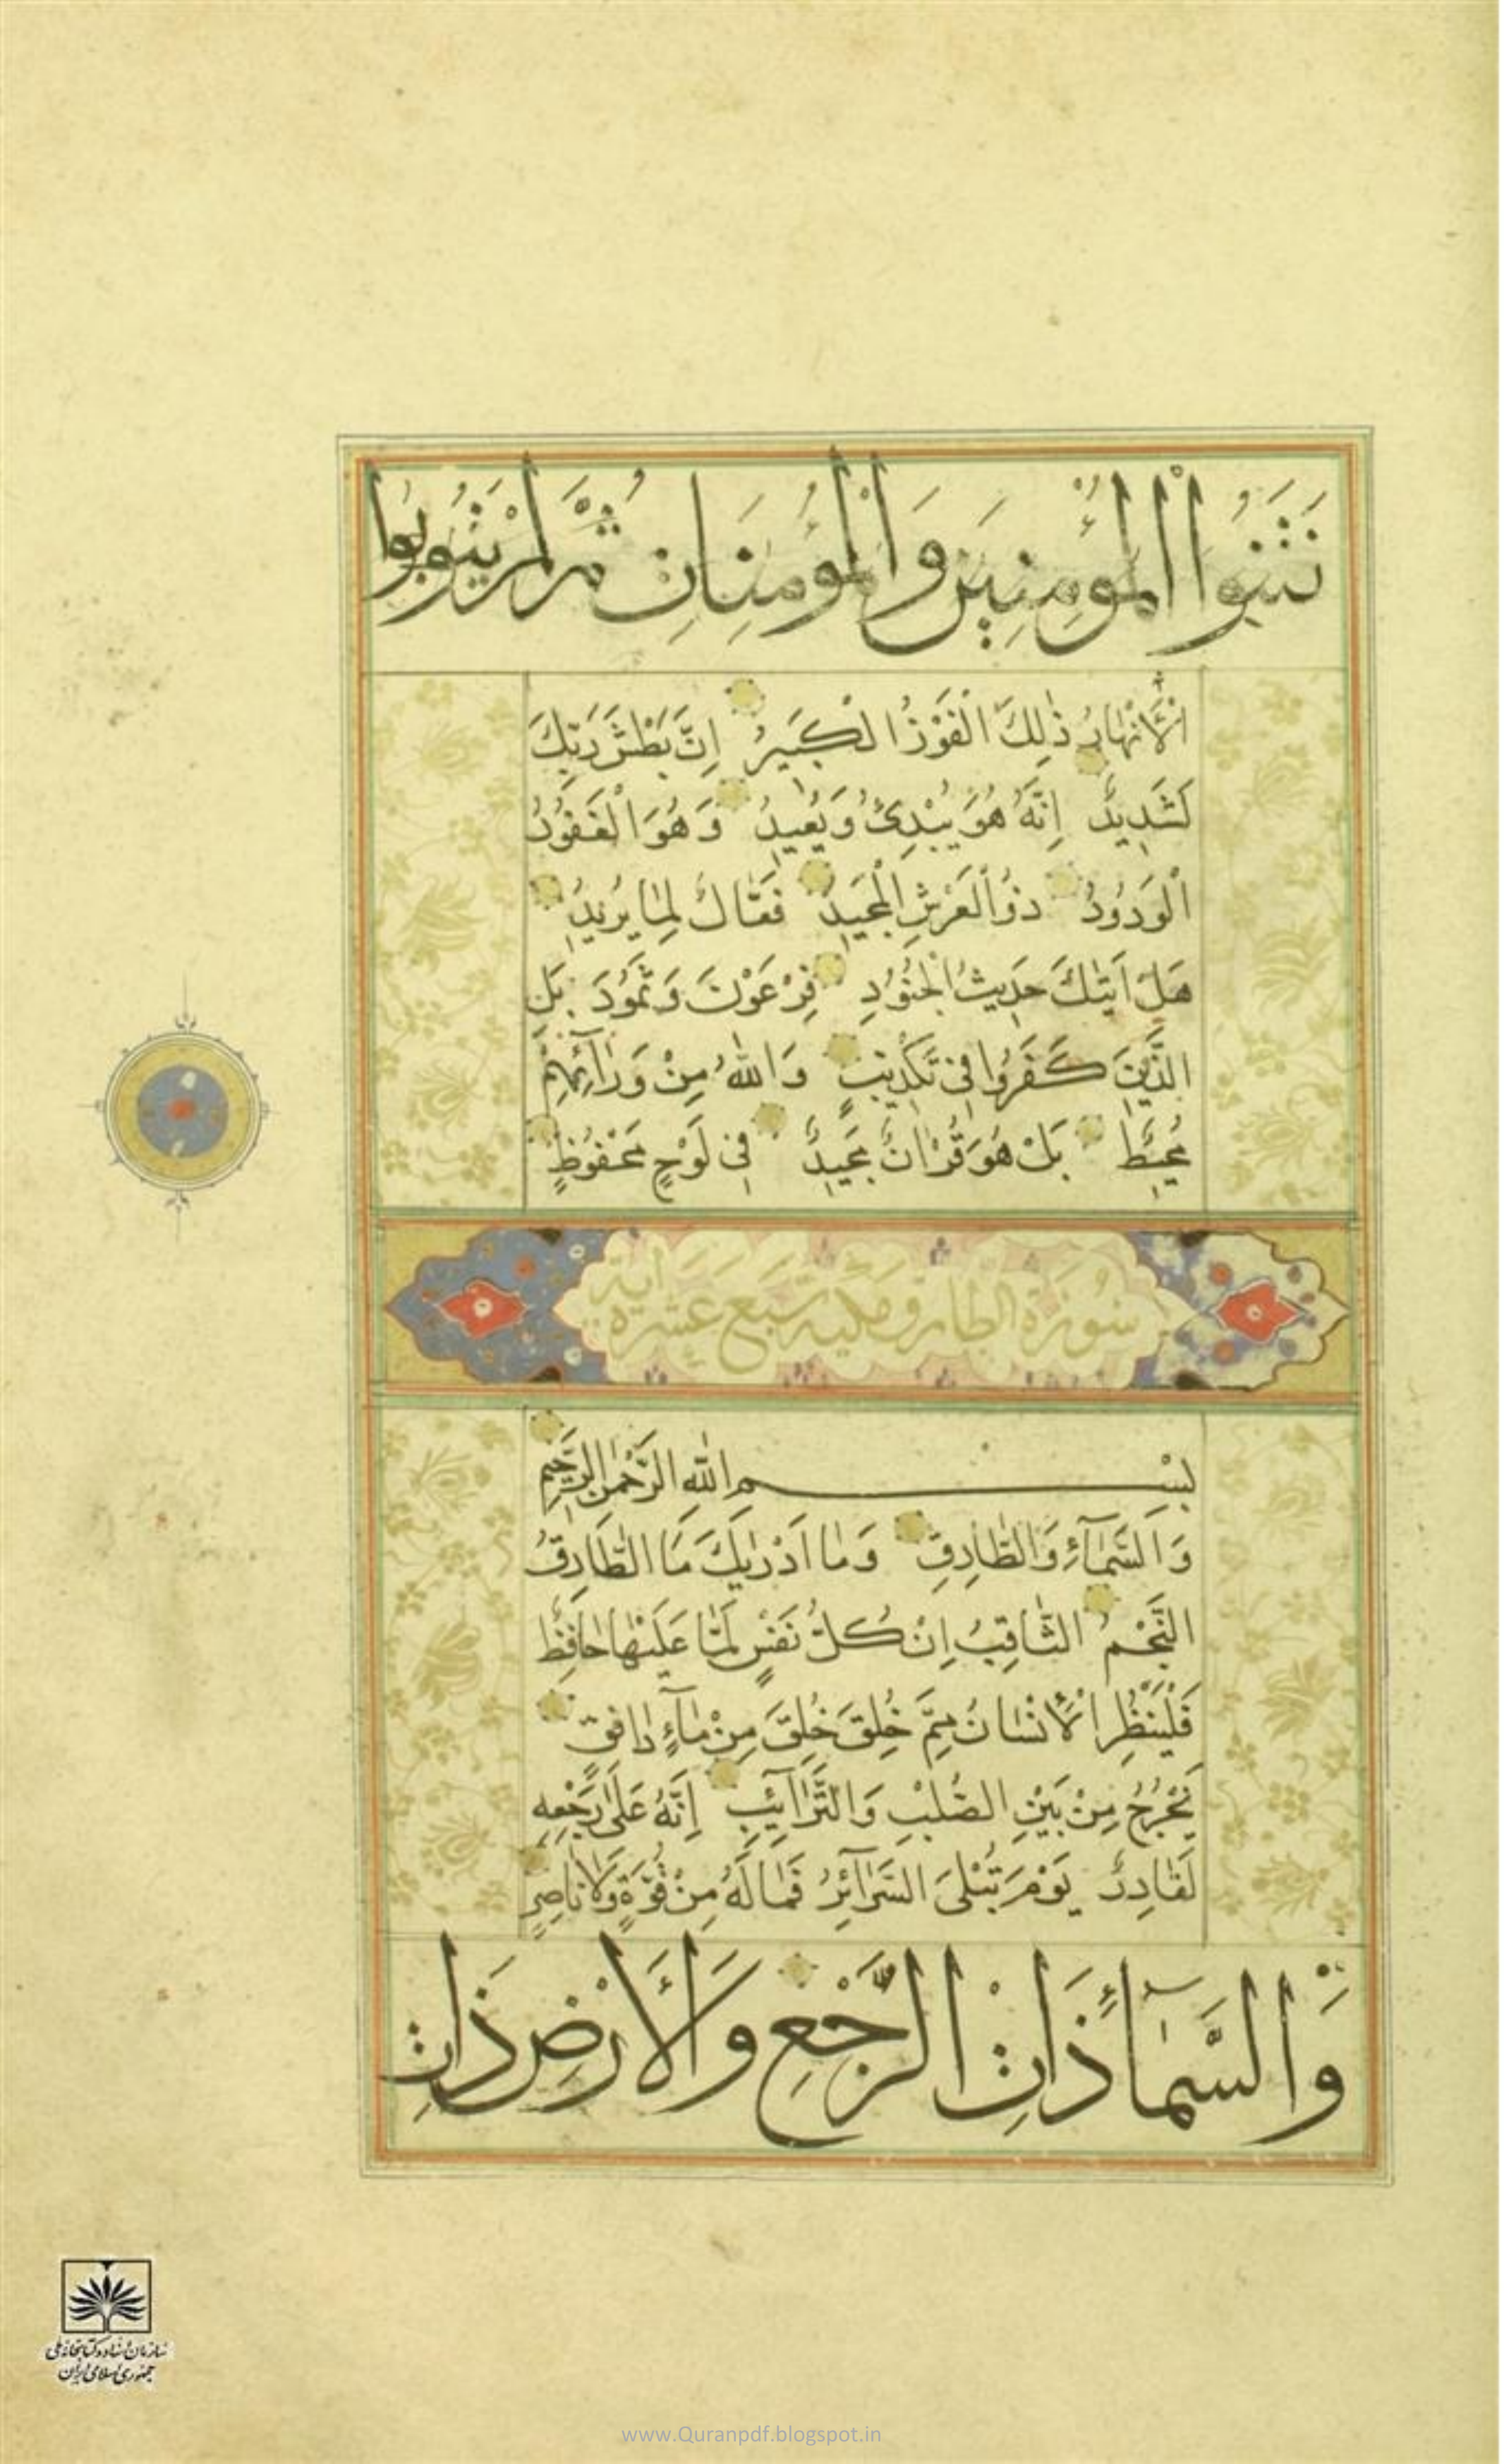 فَتَنُوا الْمُؤْمِنِينَ وَالْمُؤْمِنَاتِ ثُمَّ لَمْ يَتُوبُوا
الْأَنْهَارُ ذٰلِكَ الْفَوْزُ الْكَبِيرُ اِنَّ بَطْشَ رَبِّكَ
لَشَدِيدٌ اِنَّهُ هُوَ يُبْدِئُ وَيُعِيدُ وَهُوَ الْغَفُورُ
الْوَدُودُ ذُو الْعَرْشِ الْمَجِيدُ فَعَّالٌ لِمَا يُرِيدُ
هَلْ اَتٰيكَ حَدِيثُ الْجُنُودِ فِرْعَوْنَ وَثَمُودَ بَلِ
الَّذِينَ كَفَرُوا فِى تَكْذِيبٍ وَاللّٰهُ مِنْ وَرَآئِهِمْ
مُحِيطٌ بَلْ هُوَ قُرْاٰنٌ مَجِيدٌ فِى لَوْحٍ مَحْفُوظٍ
سُورَة الطارق مكيه سَبع عَشَرة اية
بِسْمِ اللّٰهِ الرَّحْمٰنِ الرَّحِيمِ
وَالسَّمَآءِ وَالطَّارِقِ وَمَا اَدْرٰيكَ مَا الطَّارِقُ
النَّجْمُ الثَّاقِبُ اِنْ كُلُّ نَفْسٍ لَمَّا عَلَيْهَا حَافِظٌ
فَلْيَنْظُرِ الْأِنْسَانُ مِمَّ خُلِقَ خُلِقَ مِنْ مَآءٍ دَافِقٍ
يَخْرُجُ مِنْ بَيْنِ الصُّلْبِ وَالتَّرَآئِبِ اِنَّهُ عَلٰى رَجْعِهِ
لَقَادِرٌ يَوْمَ تُبْلَى السَّرَآئِرُ فَمَا لَهُ مِنْ قُوَّةٍ وَلَا نَاصِرٍ
وَالسَّمَآءِ ذَاتِ الرَّجْعِ وَالْأَرْضِ ذَاتِ
سازمان اسناد و کتابخانه ملی
جمهوری اسلامی ایران
www.Quranpdf.blogspot.in